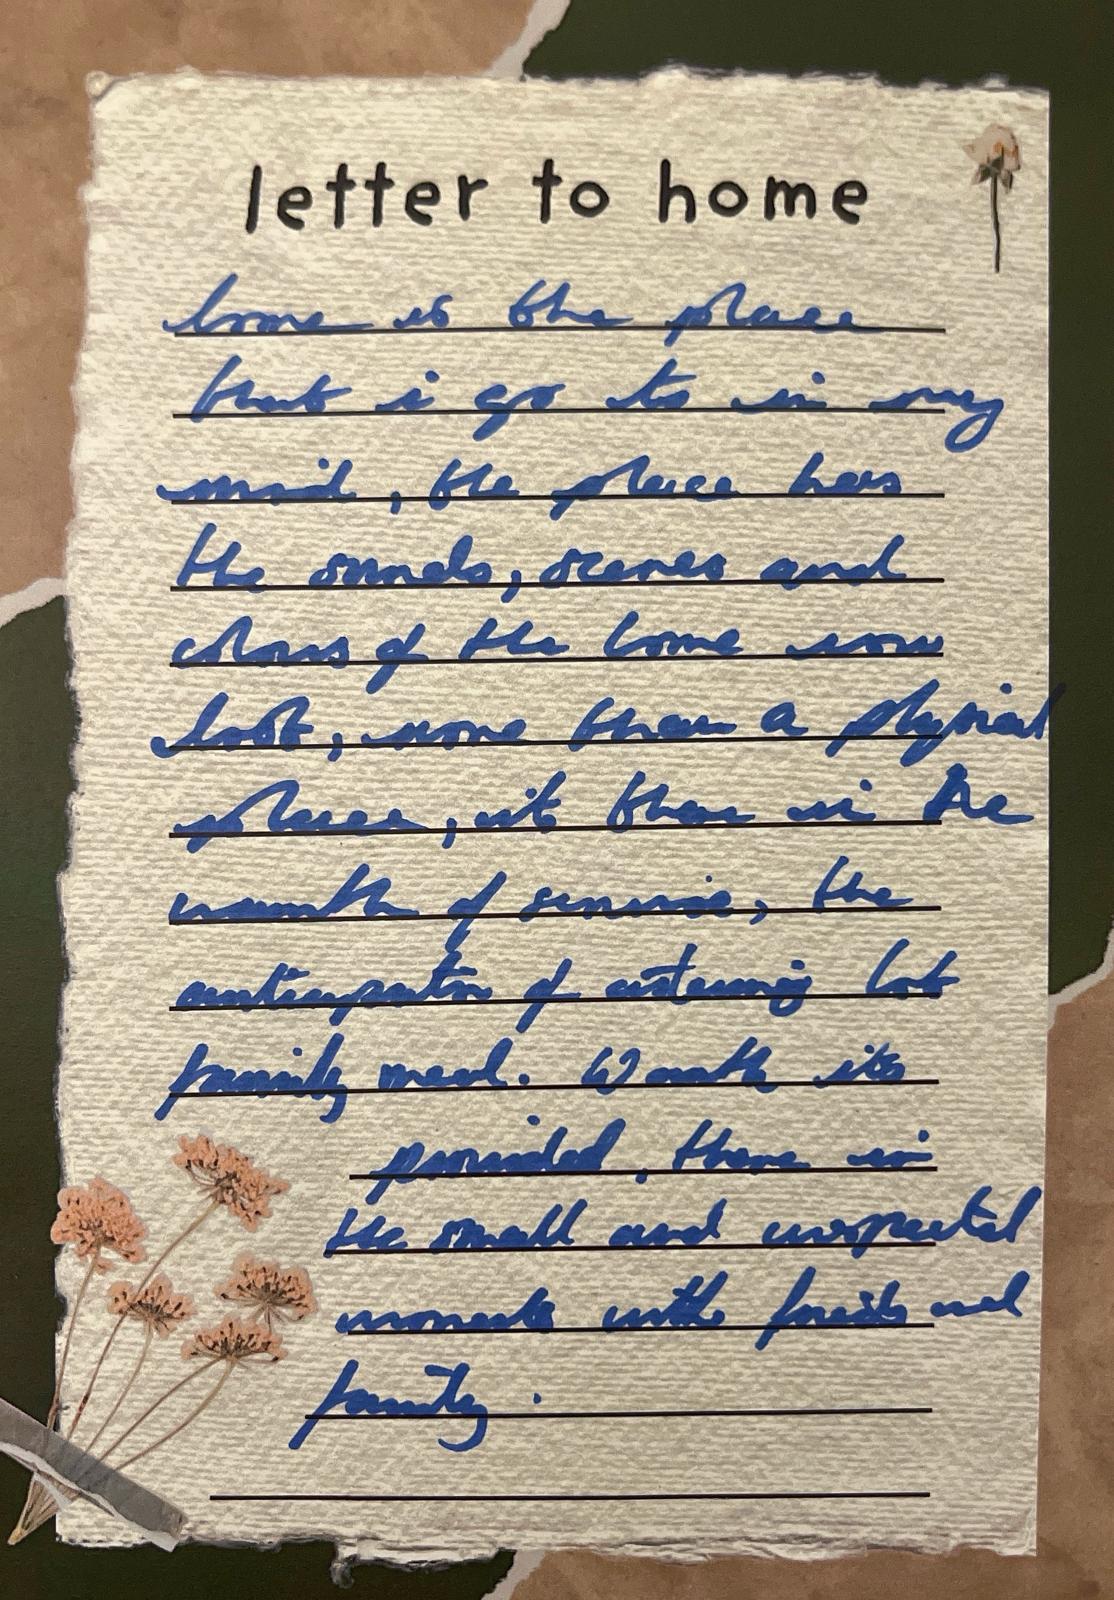 letter to home
home is the place
that i go to in my
mind, the place has
the sounds, scenes and
colours of the home now
lost, more than a physical
place, it there in the
warmth of sunrise, the
anticipation of entering lost
family meal. Warmth its
provided, there in
the small and unexpected
moments with friends and
family.